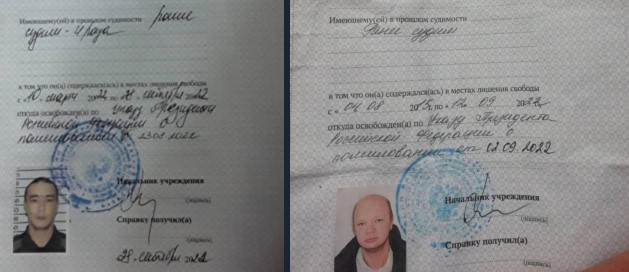 Имеющему(ей) в прошлом судимости ранее
судим - 4 раза
в том что он(а) содержался(ась) в местах лишения свободы
с 10 марта по 28 сентября 2022
откуда освобожден(а) по Указу Президента
Российской Федерации о
помиловании
Начальник учреждения
(подпись)
Справку получил(а)
(подпись)
28 сентября 2022
Имеющему(ей) в прошлом судимости
Ранее судим
в том что он(а) содержался(ась) в местах лишения свободы
с « 04 08 по « 09
откуда освобожден(а) по Указу Президента
Российской Федерации о
помиловании от 02.09.2022
Начальник учреждения
(подпись)
Справку получил(а)
(подпись)